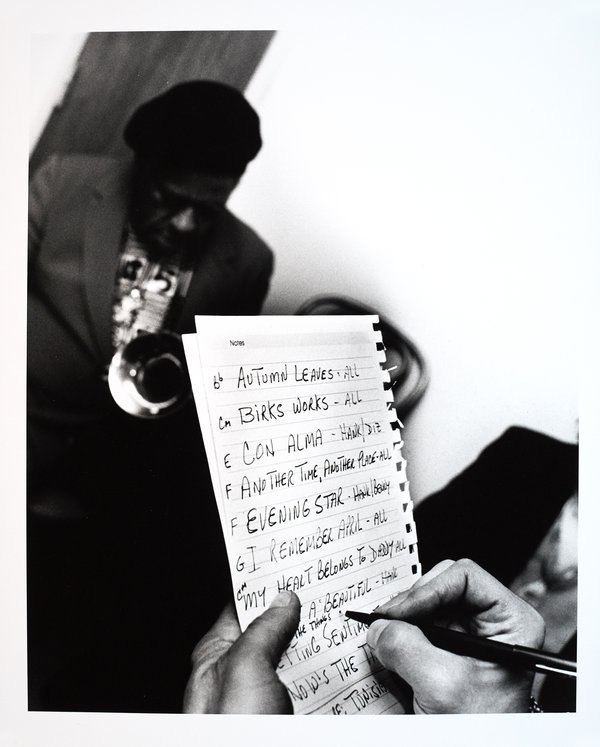 Notes
Bb AUTUMN LEAVES - ALL
Cm BIRKS WORKS - ALL
E CON ALMA - HANK/DIZ
F ANOTHER TIME, ANOTHER PLACE-ALL
F EVENING STAR - HANK/BENNY
G I REMEMBER APRIL - ALL
Cm MY HEART BELONGS TO DADDY ALL
A BEAUTIFUL - HANK
THE THINGS
TTING SENTIM
NOW'S THE T